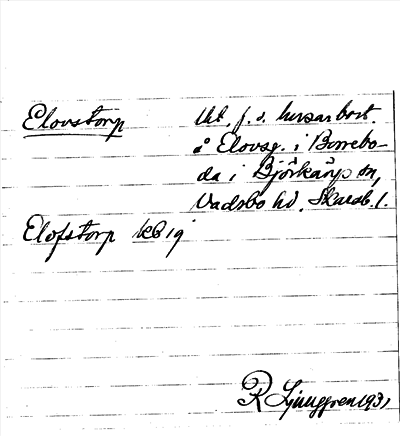 Elovstorp
Ut. f. d. husarbost.
å Elovsg. i Borrebo-
da i Björkäng sn,
Vadsbo hd, Skarab. l.
Elofstorp kEB 19
R Ljunggren 1931